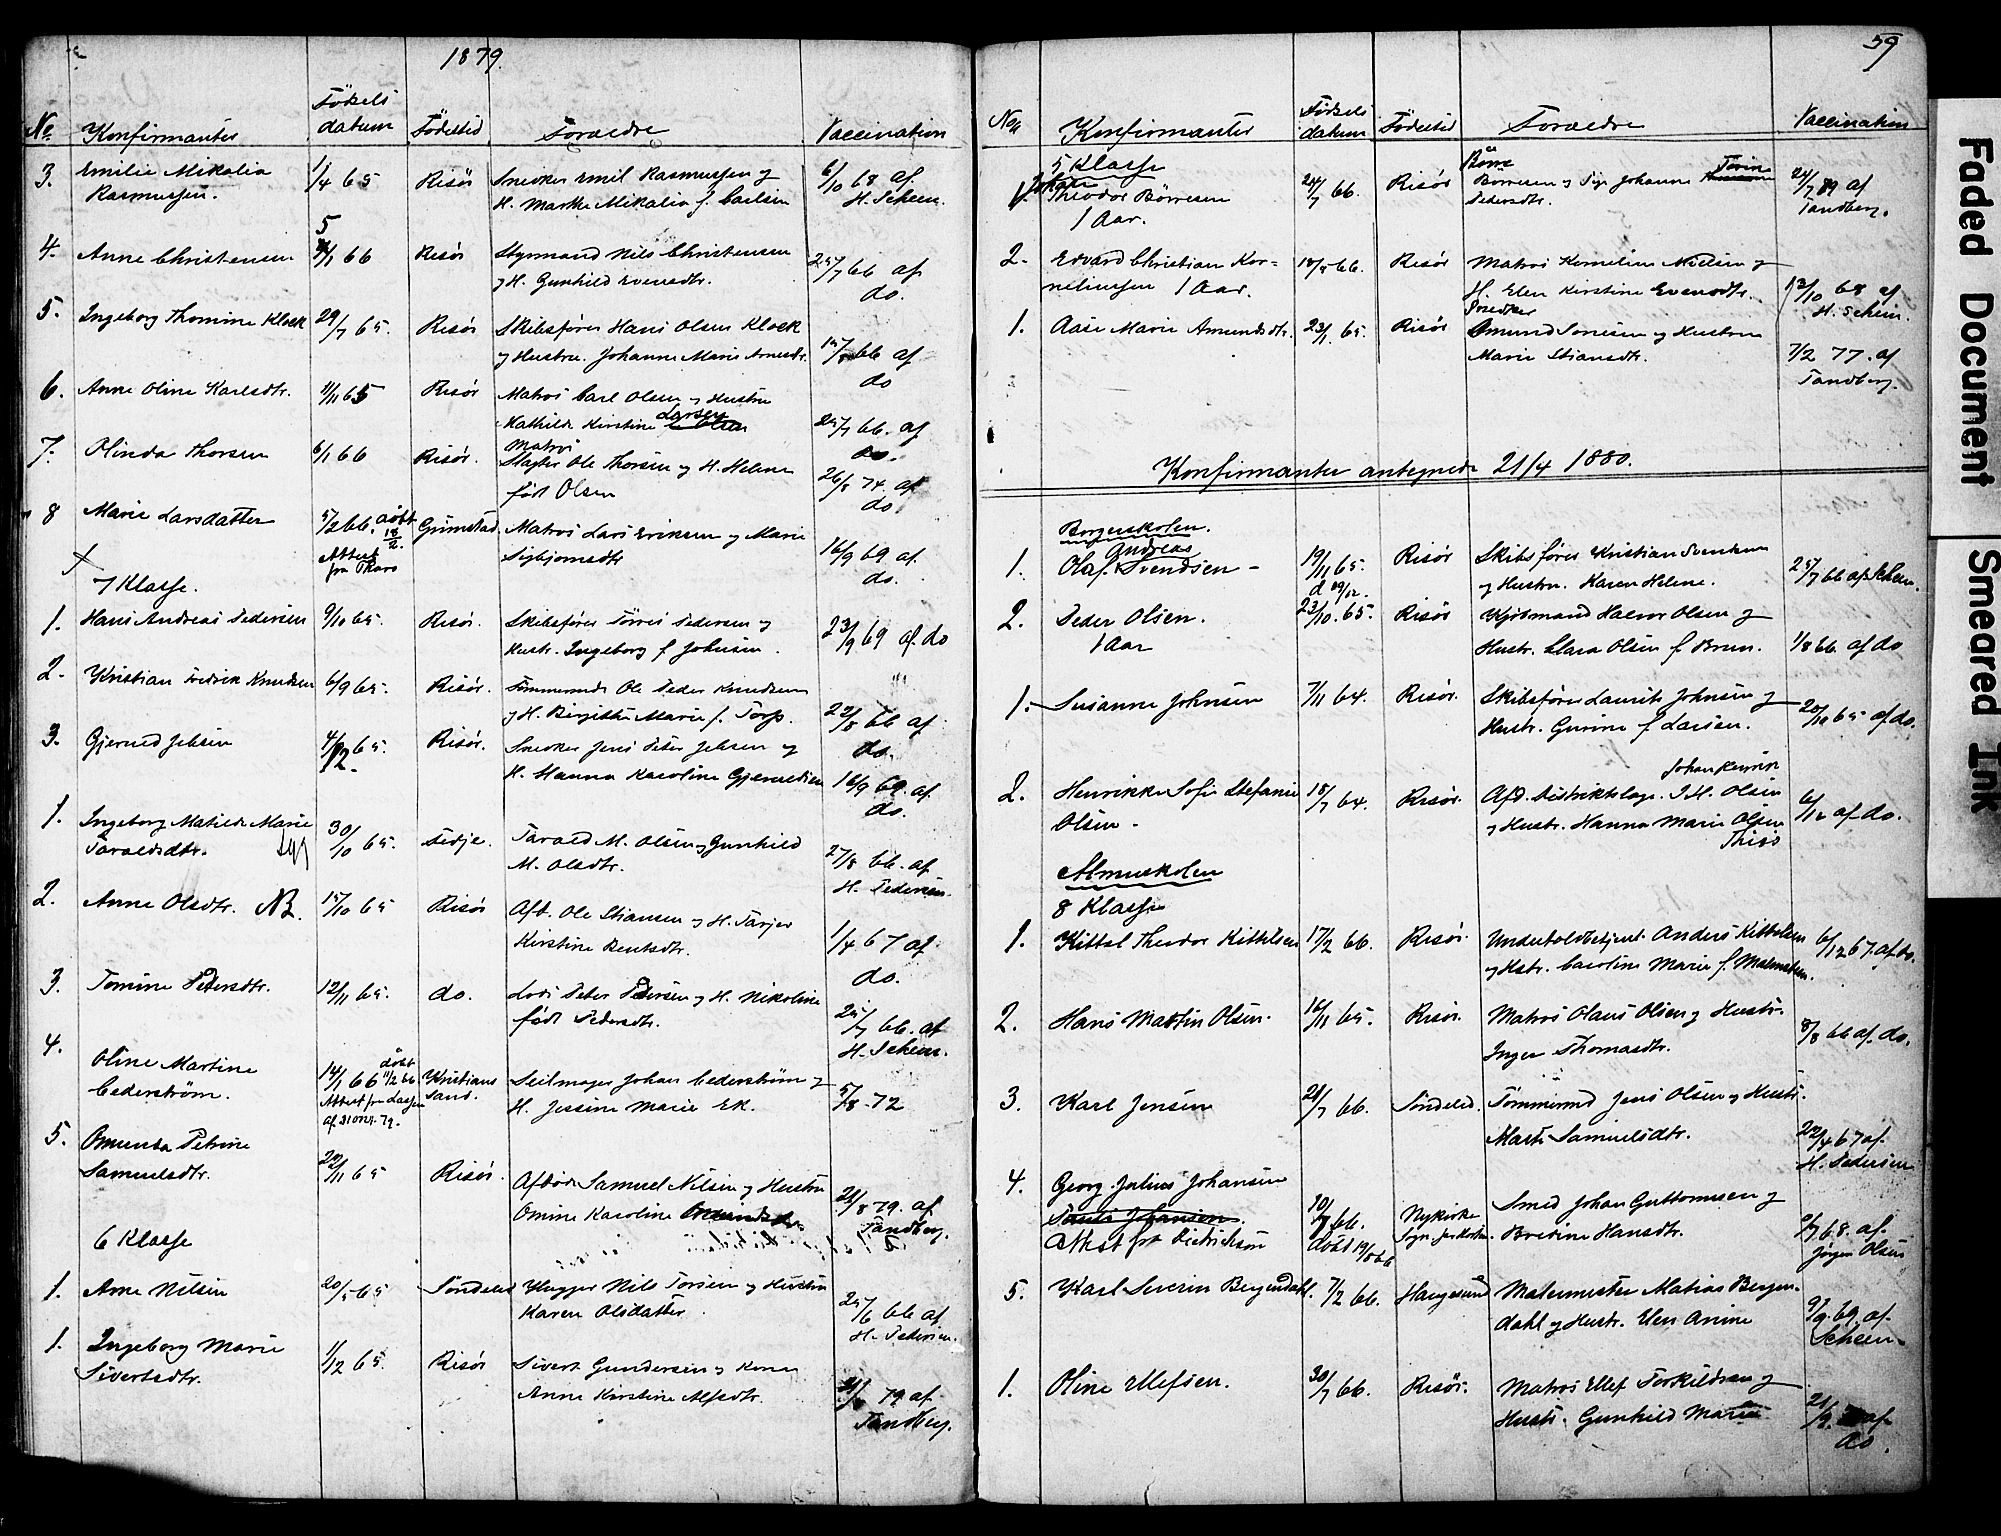 1879.
No. Konfirmanter Födsels datum Födested Forældre Vaccination
3. Emilie Mikalia 1/4 65 Risör Snedker Emil Rasmussen og 6/10 68 af
Rasmussen. H. Marthe Mikalia f. Carlsen H. Scheen.
4. Anne Christensen 5/1 66 Risør Styrmand Nils Christensen 25/7 66 af
og H. Gunhild Evensdtr. do.
5. Ingeborg Thomine Klock 29/7 65. Risör Skibsfører Hans Olsen Klock af
og Hustru Johanne Marie do
6. Anne Oline Karlsdtr. 11/11 65 Risör Matros Carl Olsen og Hustru
Mathilde Kirstine Larsen 25/7 66. af
do.
7. Olinda Thorsen 6/1 66 Risör. Matros
Ole Thorsen og H. Helene 26/8 74. af
født Olsen do
8 Marie Larsdatter 5/2 66. döbt 18/2. Grimstad Matros Lars Eriksen og Marie 16/9 69 af.
Attest fra do.
7 Klasse.
1. Hans Andreas Pedersen 9/10 65. Risör. Skibsfører Tørres Pedersen og 23/9 69 af. do
Hustr. Ingeborg f. Johnsen.
2. Kristian Fredrik Knudsen 6/9 65. Risör. Tømmermd. Ole Peder Knudsen
og H. Birgitte Marie f. Torp. 22/8 66 af
do.
3. Gjerued Jebsen 4/12 65. Risör. Snedker Jens Peter Jebsen og
H. Hanna Karoline Gjerueldsen 16/9 69. af
do.
1. Ingeborg Matilde Marie 30/10 65. Sidje. Tarald M. Olsen og Gunhild
Taraldsdtr. M. Olsdtr. 27/8 66. af
H. Pedersen.
2. Anne Olsdtr. NB. 15/10 65 Risör Afd. Ole Stiansen og H. Tarjer
Kirstine Bentsdtr. 1/4 67 af
do.
3. Tomine Pedersdtr. 12/11 65. do. Lods Peter Pedersen og H. Nikoline
født Pedersdtr. 25/7 66. af
H. Scheen.
4. Oline Martine 14/1 66 döbt 11/2 66 Kristiansand. Seilmager Johan Cederstrøm og
Cederstrøm. H. Jessine Marie Ek. 5/8 72
5. Omunda Petrine
Samuelsdtr. 22/11 65 Risör. Afdøde Samuel Nilsen og Hustru
Omine Karoline 21/8 79. af
Tandberg.
6 Klasse
1. Arne Nilsen 20/5 65 Söndeled Nils Torsen og Hustru
Karen Olsdatter. 25/6 66 af
H. Pedersen.
1. Ingeborg Marie 1/12 65. Risör Sivert Gundersen og Kone
Sivertsdtr. Anne Kirstine Alfsdtr. 79 af
Tandberg.
59
No. Konfirmanter Fødsels datum Födested Forældre Vaccination
5 Klasse
1. Johan Theodor Börresen 24/7 66. Risör Börre
Börresen og Johanne 21/7 89 af
1 Aar. Pedersdtr. Tandberg.
2. Edvard Christian Kor= 18/5 66. Risör Matros Kornelius Nielsen og
neliussen 1 Aar. H. Elen Kirstine Evensdtr. 13/10 68 af
H. Scheen.
1. Aase Marie Amundsdtr. 23/1 65. Risör Snedker
Amund Jonesen og Hustru
Marie Stiansdtr. 7/2 77. af
Tandberg.
Konfirmanter antegnede 21/4 1880.
Borgerskolen.
1. Olaf Andreas Svendsen - 19/11 65. Risör Skibsfører Kristian Svendsen
d 29/12. og Hustru. Karen Helene. 25/7 66 af Scheen.
2. Peder Olsen. 23/10. 65. Risör Kjöbmand Halvor Olsen og
1 Aar Hustr. Clara Olsen f. Brun. 1/8 66. af do
1. Susanne Johnsen 7/11 64. Risör. Skibsfører Laurits Johnsen og
Hustr. Gurine f. Larsen. 20/10 65 af do.
2. Henrikke Sofie Stefanie 18/7 64. Risör. Afd. Distriktslæge. J. H. Olsen
Johan Henrik
Olsen. og Hustr. Hanna Marie Olsen 6/12 af do.
Thiis
Almueskolen
8 Klasse
1. Kittel Theodor Kittelsen 17/2 66. Risör. Underfoldbetjent Anders Kittelsen 6/12 67. af do.
og Hstr. Caroline Marie f. Malmstrøm.
2. Hans Martin Olsen. 16/11 65. Risör. Matros Olaus Olsen og Hustr.
Inger Thomasdtr. 8/8 66 af. do.
3. Karl Jensen 21/7 66. Söndeled. Tömmermd Jens Olsen og Hustr.
Marte Samuelsdtr. 22/4 67 af.
H. Pedersen
4. Georg Julius Johansen
10/7 66. Nykirke Smed Johan Guttormsen og
Attest fra Diedrichson Döbt 19/8 66 Sogn Bredine Hansdtr. 68. af.
Jørgen Olsen
5. Karl Severin Bergendahl. 7/2 66. Haugesund Malermester Matias Bergen-
dahl og Hustr. Elen Anine 9/9. 69. af.
Scheen.
1. Oline Ellefsen. 30/7 66. Risör. Matros Ellef Torkildsen og
Hustr. Gunhild Marie 21/9. af
do.
Faded Document
Smeared Ink